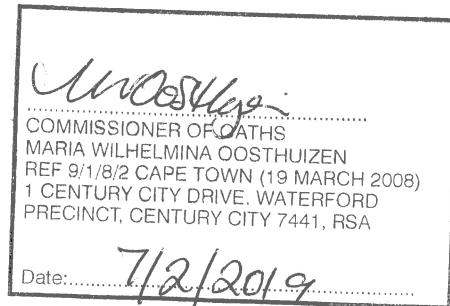 MWOosthuizen
COMMISSIONER OF OATHS
MARIA WILHELMINA OOSTHUIZEN
REF 9/1/8/2 CAPE TOWN (19 MARCH 2008)
1 CENTURY CITY DRIVE. WATERFORD
PRECINCT, CENTURY CITY 7441, RSA
Date: 7/2/2019